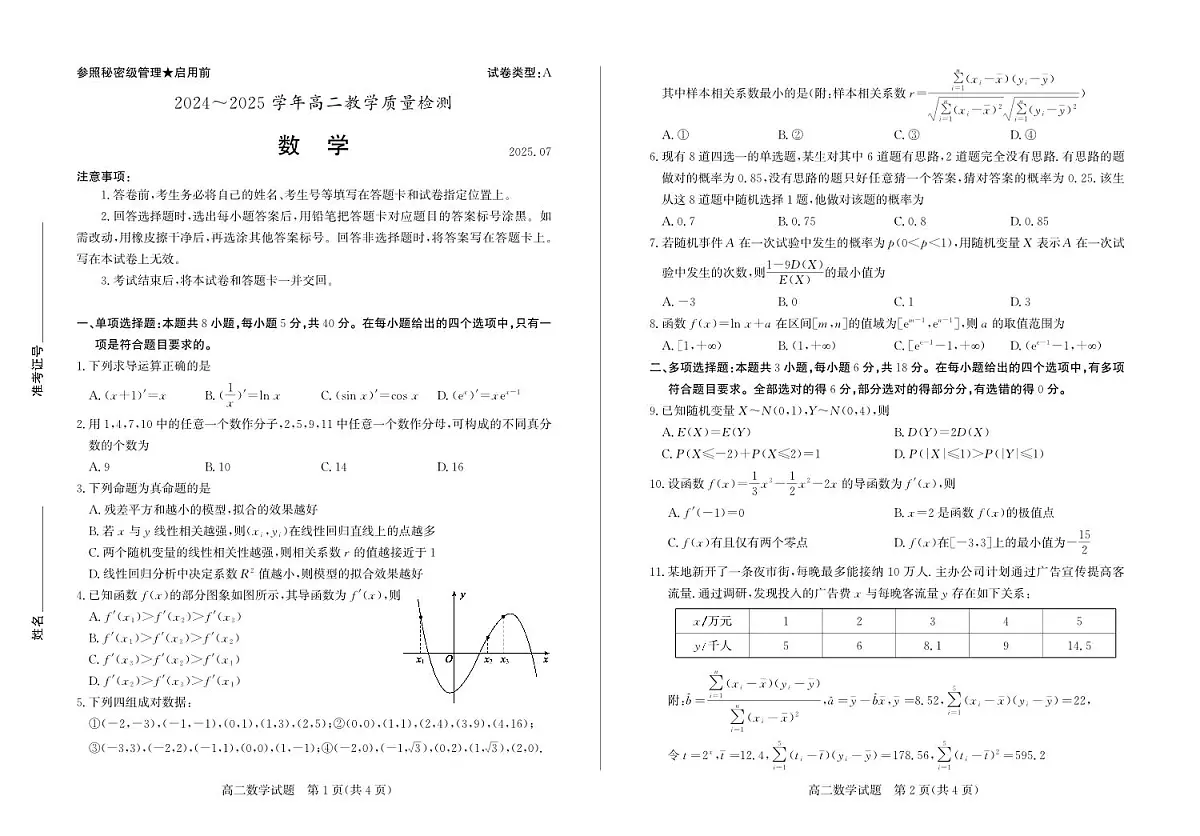 参照秘密级管理★启用前 试卷类型:A
2024～2025 学年高二教学质量检测
数 学 2025.07
注意事项:
1.答卷前,考生务必将自己的姓名、考生号等填写在答题卡和试卷指定位置上。
2.回答选择题时,选出每小题答案后,用铅笔把答题卡对应题目的答案标号涂黑。如
需改动,用橡皮擦干净后,再选涂其他答案标号。回答非选择题时,将答案写在答题卡上。
写在本试卷上无效。
3.考试结束后,将本试卷和答题卡一并交回。
一、单项选择题:本题共 8 小题,每小题 5 分,共 40 分。在每小题给出的四个选项中,只有一
项是符合题目要求的。
1.下列求导运算正确的是
A.(x+1)′=x B.(1/x)′=ln x C.(sin x)′=cos x D.(eˣ)′=xeˣ⁻¹
2.用 1,4,7,10 中的任意一个数作分子,2,5,9,11 中任意一个数作分母,可构成的不同真分
数的个数为
A.9 B.10 C.14 D.16
3.下列命题为真命题的是
A.残差平方和越小的模型,拟合的效果越好
B.若 x 与 y 线性相关越强,则(xᵢ,yᵢ)在线性回归直线上的点越多
C.两个随机变量的线性相关性越强,则相关系数 r 的值越接近于 1
D.线性回归分析中决定系数 R² 值越小,则模型的拟合效果越好
4.已知函数 f(x)的部分图象如图所示,其导函数为 f′(x),则
A.f′(x₁)>f′(x₂)>f′(x₃)
B.f′(x₁)>f′(x₃)>f′(x₂)
C.f′(x₃)>f′(x₂)>f′(x₁)
D.f′(x₂)>f′(x₃)>f′(x₁)
y
x₁ O x₂ x₃ x
5.下列四组成对数据:
①(-2,-3),(-1,-1),(0,1),(1,3),(2,5);②(0,0),(1,1),(2,4),(3,9),(4,16);
③(-3,3),(-2,2),(-1,1),(0,0),(1,-1);④(-2,0),(-1,√3),(0,2),(1,√3),(2,0).
准考证号
姓名
高二数学试题 第 1 页(共 4 页)
其中样本相关系数最小的是(附:样本相关系数 r=∑ⁿᵢ₌₁(xᵢ-x̄)(yᵢ-ȳ)/(√∑ⁿᵢ₌₁(xᵢ-x̄)²√∑ⁿᵢ₌₁(yᵢ-ȳ)²))
A.① B.② C.③ D.④
6.现有 8 道四选一的单选题,某生对其中 6 道题有思路,2 道题完全没有思路.有思路的题
做对的概率为 0.85,没有思路的题只好任意猜一个答案,猜对答案的概率为 0.25.该生
从这 8 道题中随机选择 1 题,他做对该题的概率为
A.0.7 B.0.75 C.0.8 D.0.85
7.若随机事件 A 在一次试验中发生的概率为 p(0<p<1),用随机变量 X 表示 A 在一次试
验中发生的次数,则(1-9D(X))/E(X)的最小值为
A.-3 B.0 C.1 D.3
8.函数 f(x)=ln x+a 在区间[m,n]的值域为[eᵐ⁻¹,eⁿ⁻¹],则 a 的取值范围为
A.[1,+∞) B.(1,+∞) C.[eᵉ⁻¹-1,+∞) D.(eᵉ⁻¹-1,+∞)
二、多项选择题:本题共 3 小题,每小题 6 分,共 18 分。在每小题给出的四个选项中,有多项
符合题目要求。全部选对的得 6 分,部分选对的得部分分,有选错的得 0 分。
9.已知随机变量 X～N(0,1),Y～N(0,4),则
A.E(X)=E(Y) B.D(Y)=2D(X)
C.P(X≤-2)+P(X≤2)=1 D.P(|X|≤1)>P(|Y|≤1)
10.设函数 f(x)=1/3x³-1/2x²-2x 的导函数为 f′(x),则
A.f′(-1)=0 B.x=2 是函数 f(x)的极值点
C.f(x)有且仅有两个零点 D.f(x)在[-3,3]上的最小值为-15/2
11.某地新开了一条夜市街,每晚最多能接纳 10 万人.主办公司计划通过广告宣传提高客
流量.通过调研,发现投入的广告费 x 与每晚客流量 y 存在如下关系:
x/万元 1 2 3 4 5
y/千人 5 6 8.1 9 14.5
附:b̂=∑ⁿᵢ₌₁(xᵢ-x̄)(yᵢ-ȳ)/∑ⁿᵢ₌₁(xᵢ-x̄)²,â=ȳ-b̂x̄,ȳ=8.52,∑⁵ᵢ₌₁(xᵢ-x̄)(yᵢ-ȳ)=22,
令 t=2ˣ,t̄=12.4,∑⁵ᵢ₌₁(tᵢ-t̄)(yᵢ-ȳ)=178.56,∑⁵ᵢ₌₁(tᵢ-t̄)²=595.2
高二数学试题 第 2 页(共 4 页)